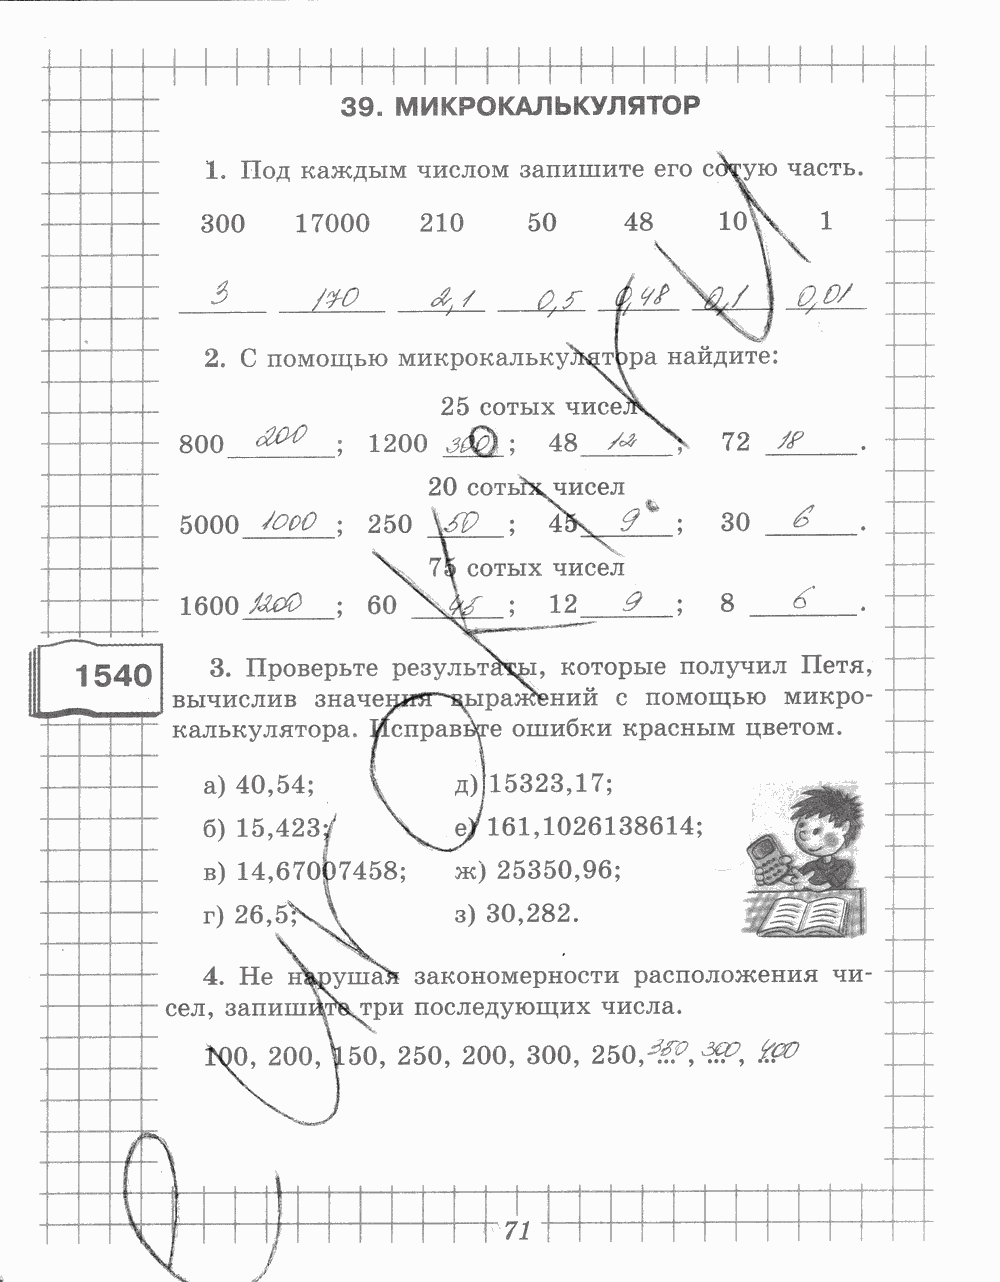 39. МИКРОКАЛЬКУЛЯТОР
1. Под каждым числом запишите его сотую часть.
300 17000 210 50 48 10 1
3 170 2,1 0,5 0,48 0,1 0,01
2. С помощью микрокалькулятора найдите:
25 сотых чисел
800 200 ; 1200 300 ; 48 12 ; 72 18 .
20 сотых чисел
5000 1000 ; 250 50 ; 45 9 ; 30 6 .
75 сотых чисел
1600 1200 ; 60 45 ; 12 9 ; 8 6 .
1540
3. Проверьте результаты, которые получил Петя,
вычислив значения выражений с помощью микро-
калькулятора. Исправьте ошибки красным цветом.
а) 40,54; д) 15323,17;
б) 15,423; е) 161,1026138614;
в) 14,67007458; ж) 25350,96;
г) 26,5; з) 30,282.
4. Не нарушая закономерности расположения чи-
сел, запишите три последующих числа.
100, 200, 150, 250, 200, 300, 250, 350, 300, 400
71